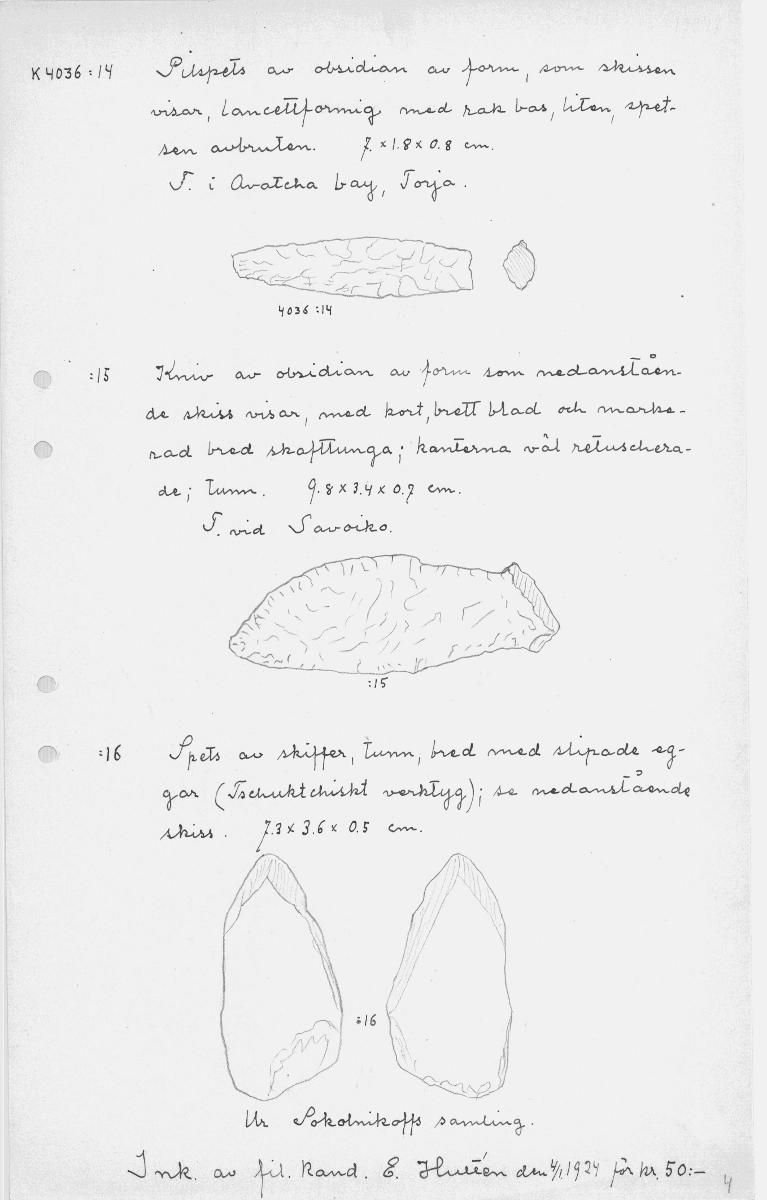 K 4036:14 Pilspets av obsidian av form, som skissen
visar, lancettformig med rak bas, liten, spet-
sen avbruten. 7. × 1.8 × 0.8 cm.
F. i Avatcha bay, Torja.
4036 :14
:15 Kniv av obsidian av form som nedanståen-
de skiss visar, med kort, brett blad och marke-
rad bred skafttunga; kanterna väl retuschera-
de; tunn. 9.8 × 3.4 × 0.7 cm.
F. vid Savoiko.
:15
:16 Spets av skiffer, tunn, bred med slipade eg-
gar (Tschuktchiskt verktyg); se nedanstående
skiss. 7.3 × 3.6 × 0.5 cm.
:16
Ur Sokolnikoffs samling.
Ink. av fil. kand. E. den 4/1 1924 för kr. 50:–
4